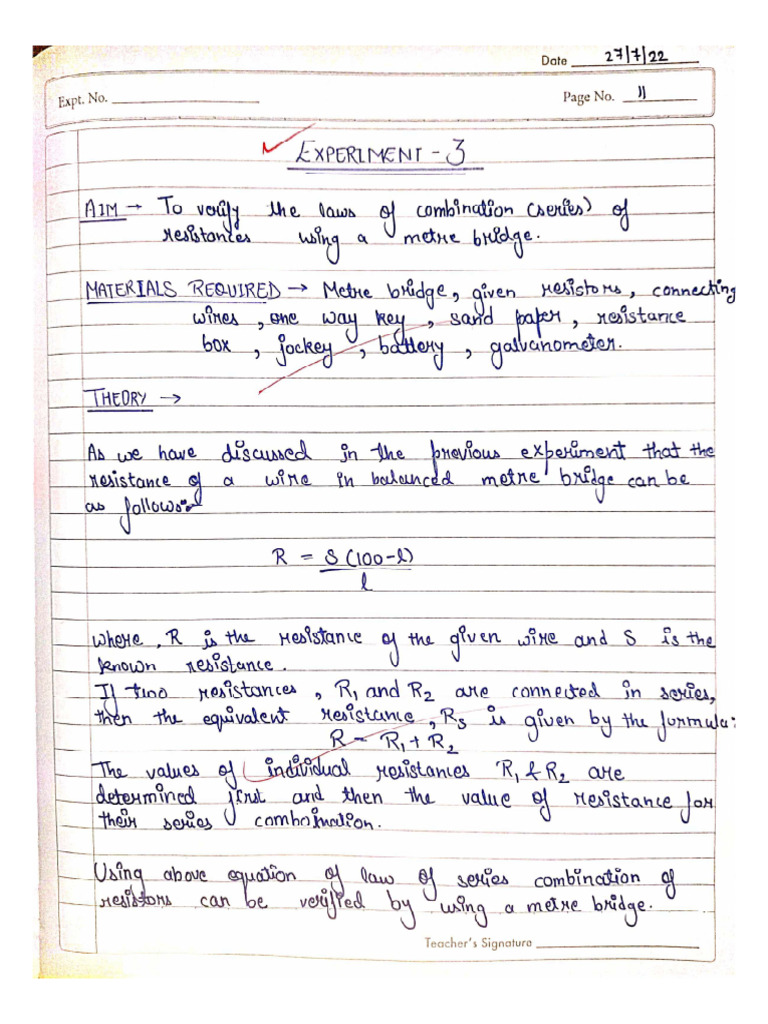 Date 27/7/22
Expt. No.
Page No. 11
EXPERIMENT - 3
AIM → To verify the laws of combination (series) of
resistances using a metre bridge.
MATERIALS REQUIRED → Metre bridge, given resistors, connecting
wires, one way key, sand paper, resistance
box, jockey, battery, galvanometer.
THEORY →
As we have discussed in the previous experiment that the
resistance of a wire in balanced metre bridge can be
as follows:-
R = S(100-l)
l
where, R is the resistance of the given wire and S is the
known resistance.
If two resistances, R₁ and R₂ are connected in series,
then the equivalent resistance, Rs is given by the formula:
R = R₁ + R₂
The values of individual resistances R₁ & R₂ are
determined first and then the value of resistance for
their series combination.
Using above equation of law of series combination of
resistors can be verified by using a metre bridge.
Teacher's Signature